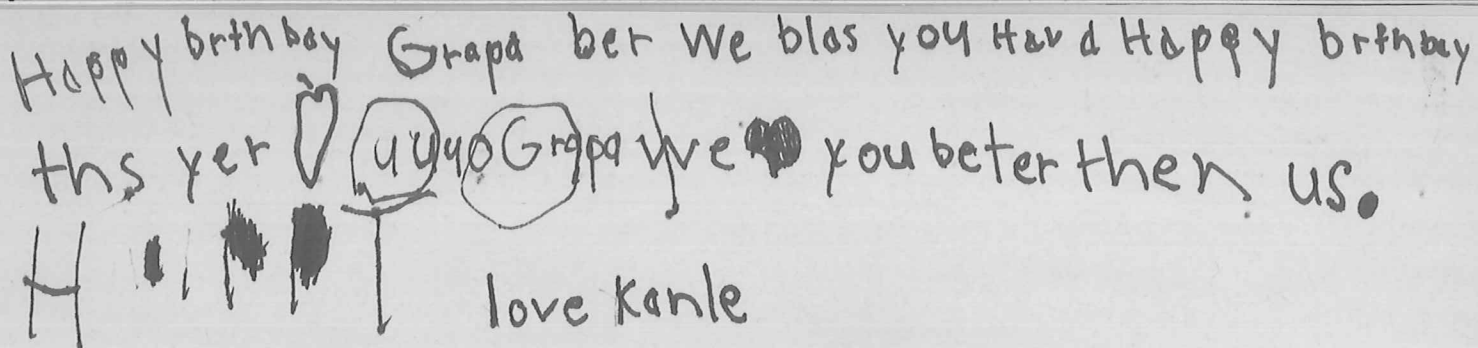 Happy brthbay Grapa ber We blas you Havd Happy brthbay
ths yer uyyo Grapa We you beter then us.
love Kanle